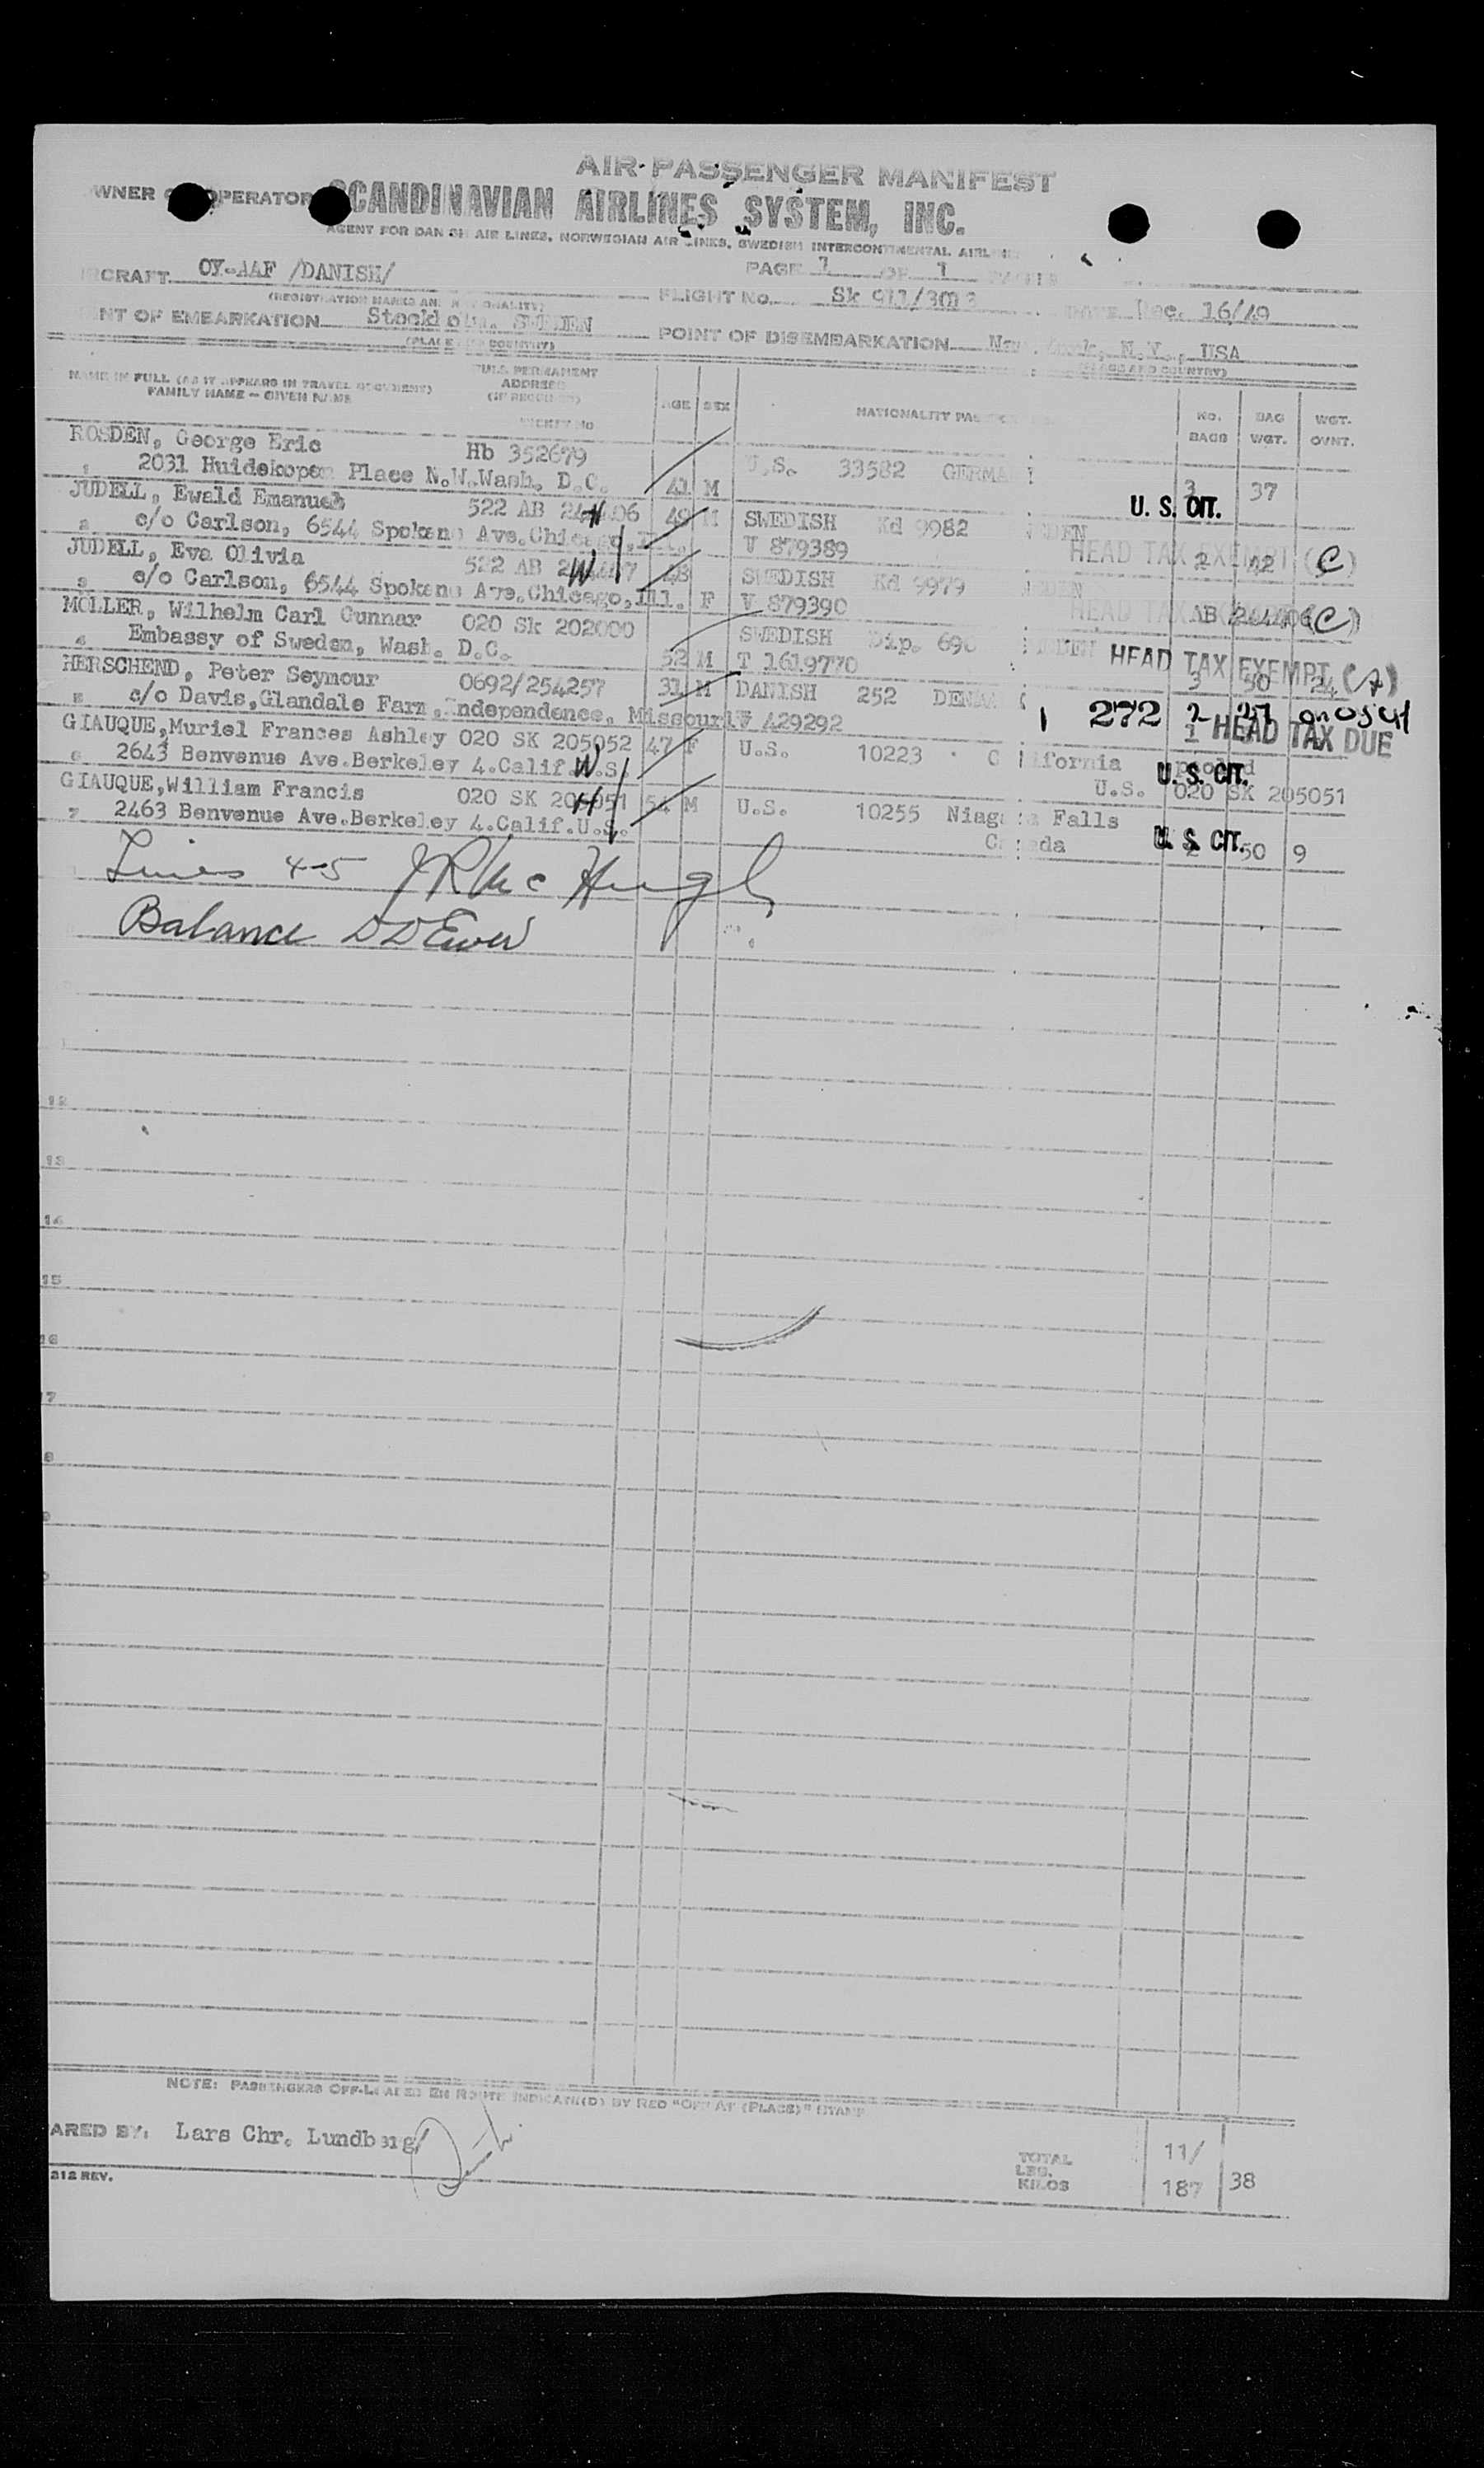 AIR PASSENGER MANIFEST
WNER OPERATOR SCANDINAVIAN AIRLINES SYSTEM, INC.
AGENT FOR DANISH AIR LINES, NORWEGIAN AIR LINES, SWEDISH INTERCONTINENTAL AIRLINES
RCRAFT OY-AAF /DANISH/ PAGE 1 OF 1
(REGISTRATION MARKS AND NATIONALITY) FLIGHT No. Sk 911/3013 DATE Dec. 16/49
NT OF EMBARKATION Stockholm. SWEDEN POINT OF DISEMBARKATION New York, N.Y., USA
(PLACE AND COUNTRY) (PLACE AND COUNTRY)
NAME IN FULL (AS IT APPEARS IN TRAVEL DOCUMENT) FULL PERMANENT
FAMILY NAME — GIVEN NAME ADDRESS AGE SEX NATIONALITY PAS NO. BAG WGT.
(IF REQUIRED) BAGS WGT. OVNT.
TICKET NO
ROSDEN, George Eric Hb 352679 U.S. 33582 GERMA
1 2031 Huidekoper Place N.W.Wash. D.C. 41 M 3 37
U. S. CIT.
JUDELL, Ewald Emanuel 522 AB 06 49 M SWEDISH Kd 9982 DEN
2 c/o Carlson, 6544 Spokane Ave.Chicago,Ill. V 879389 HEAD TAX EXEMPT (C) 2 42
JUDELL, Eva Olivia 522 AB 7 48 SWEDISH Kd 9979 EDEN
3 c/o Carlson, 6544 Spokane Ave.Chicago,Ill. F V 879390 HEAD TAX AB (C)
MOLLER, Wilhelm Carl Gunnar 020 Sk 202000 SWEDISH Dip. 690
4 Embassy of Sweden, Wash. D.C. 52 M T 1619770 HEAD TAX EXEMPT (A) 3 50 24
HERSCHEND, Peter Seymour 0692/254257 31 M DANISH 252 DENMA
5 c/o Davis,Glandale Farm,Independence, Missouri V 429292 1 272 2 27
HEAD TAX DUE
GIAUQUE,Muriel Frances Ashley 020 SK 205052 47 F U.S. 10223 California pooled
6 2643 Benvenue Ave.Berkeley 4.Calif.U.S. W U.S. 020 SK 205051
U. S. CIT.
GIAUQUE,William Francis 020 SK 205051 54 M U.S. 10255 Niagara Falls
7 2463 Benvenue Ave.Berkeley 4.Calif.U.S. H Canada 50 9
U. S. CIT.
Lines 4-5 J R Mc Hugh
Balance D D Ewer
12
13
14
15
16
17
NOTE: PASSENGERS OFF-LOADED EN ROUTE INDICATE(D) BY RED "OFF AT (PLACE)" STAMP
ARED BY: Lars Chr. Lundberg
212 REV.
TOTAL 11/
LBS.
KILOS 187 38